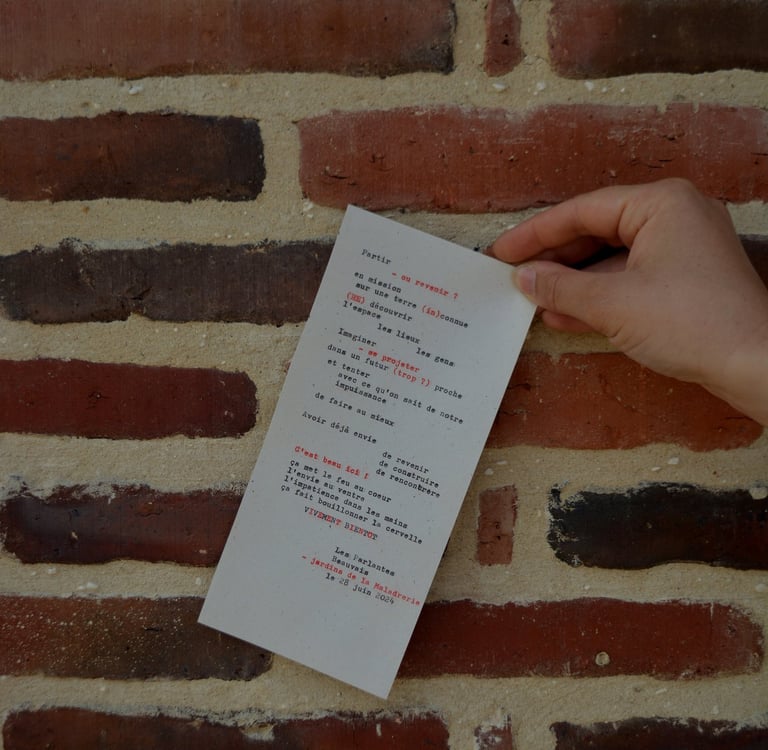 Partir
- ou revenir ?
en mission
sur une terre (in)connue
(RE) découvrir
l'espace
les lieux
les gens
Imaginer
- se projeter
dans un futur (trop ?) proche
et tenter
avec ce qu'on sait de notre
impuissance
de faire au mieux
Avoir déjà envie
de revenir
de construire
de rencontrere
C'est beau ici !
ça met le feu au coeur
l'envie au ventre
l'impatience dans les mains
ça fait bouillonner la cervelle
VIVEMENT BIENTOT
Les Parlantes
Beauvais
- jardins de la Maladrerie
le 28 juin 2024